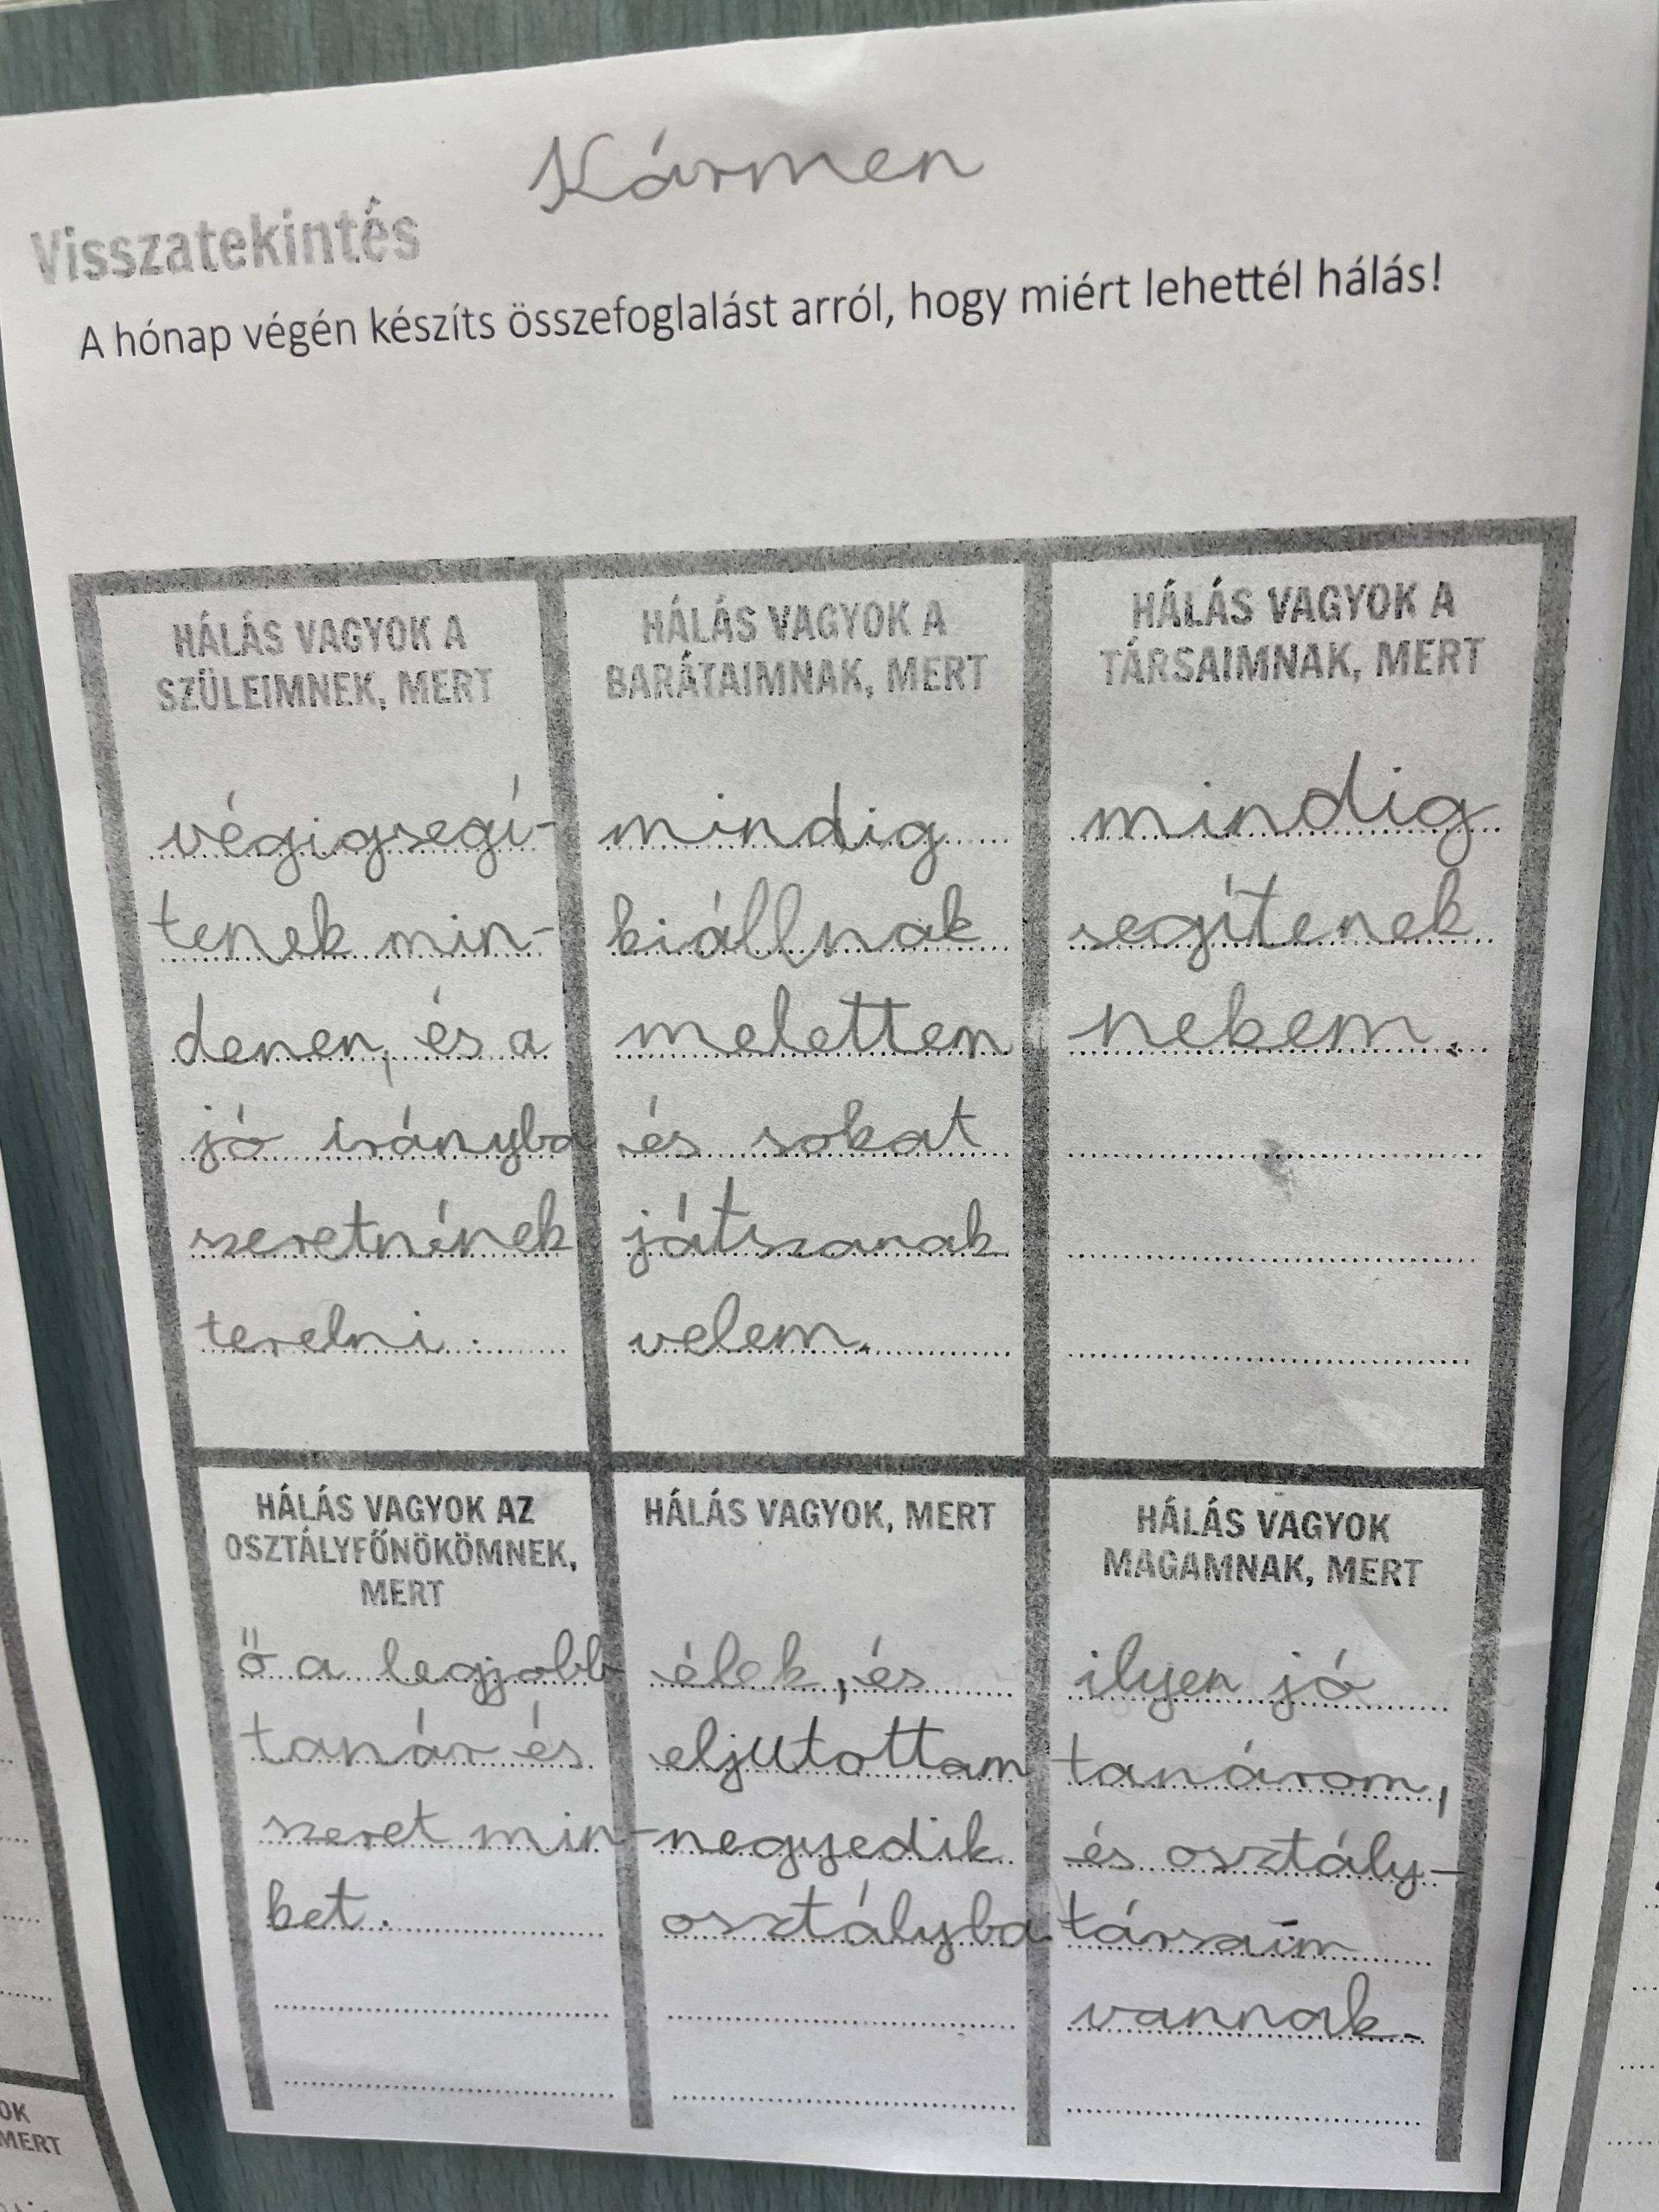 Kármen
Visszatekintés
A hónap végén készíts összefoglalást arról, hogy miért lehettél hálás!
HÁLÁS VAGYOK A
SZÜLEIMNEK, MERT
végigsegí-
tenek min-
denen, és a
jó irányba
szeretnének
terelni.
HÁLÁS VAGYOK A
BARÁTAIMNAK, MERT
mindig
kiállnak
melettem
és sokat
játszanak
velem.
HÁLÁS VAGYOK A
TÁRSAIMNAK, MERT
mindig
segítenek
nekem.
HÁLÁS VAGYOK AZ
OSZTÁLYFŐNÖKÖMNEK,
MERT
ő a legjobb
tanár és
szeret min-
ket.
HÁLÁS VAGYOK, MERT
élek, és
eljutottam
negyedik
osztályba
HÁLÁS VAGYOK
MAGAMNAK, MERT
ilyen jó
tanárom,
és osztály-
társaim
vannak.
OK
MERT